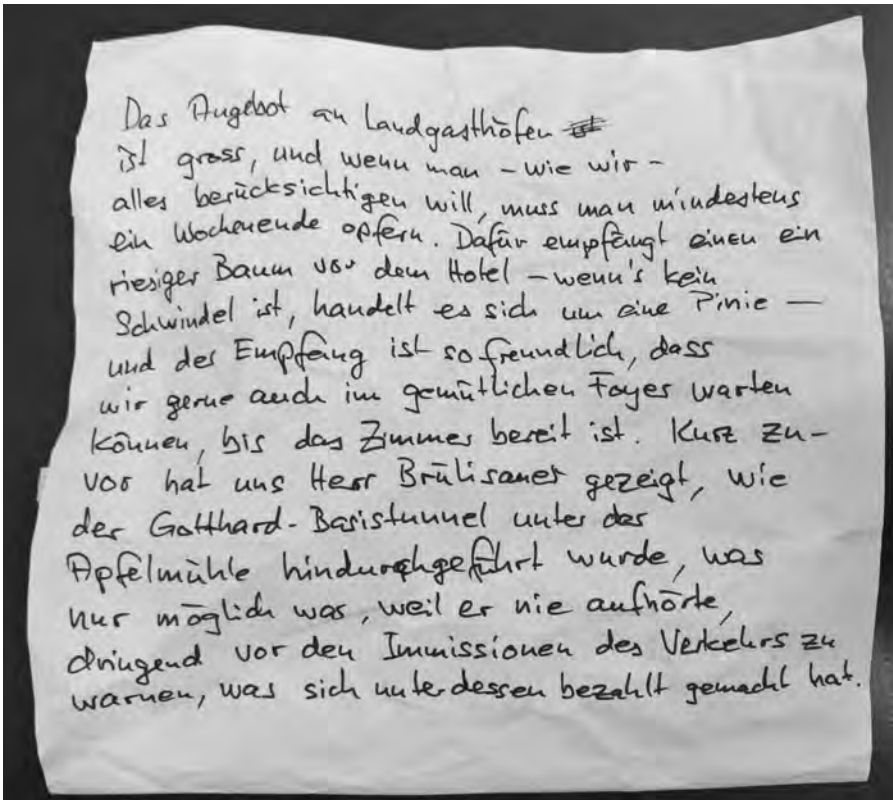 Das Angebot an Landgasthöfen
ist gross, und wenn man – wie wir –
alles berücksichtigen will, muss man mindestens
ein Wochenende opfern. Dafür empfängt einen ein
riesiger Baum vor dem Hotel – wenn's kein
Schwindel ist, handelt es sich um eine Pinie –
und der Empfang ist so freundlich, dass
wir gerne auch im gemütlichen Foyer warten
können, bis das Zimmer bereit ist. Kurz zu-
vor hat uns Herr Brülisauer gezeigt, wie
der Gotthard-Basistunnel unter der
Apfelmühle hindurchgeführt wurde, was
nur möglich war, weil er nie aufhörte,
dringend vor den Immissionen des Verkehrs zu
warnen, was sich unterdessen bezahlt gemacht hat.